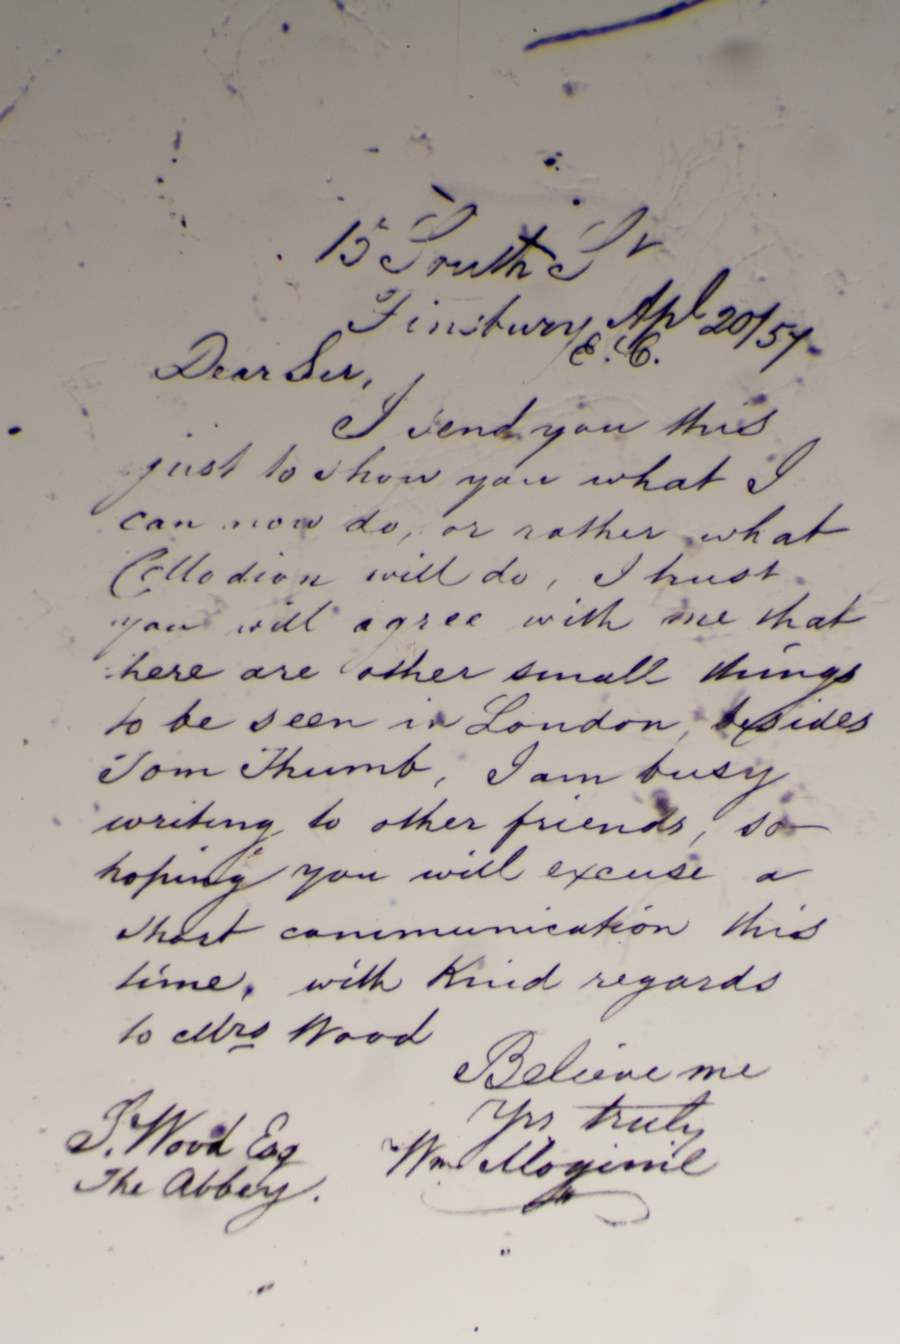 15 South St
Finsbury Apl 20/57
E.C.
Dear Sir,
I send you this
just to show you what I
can now do, or rather what
Collodion will do, I trust
you will agree with me that
there are other small things
to be seen in London, besides
Tom Thumb, I am busy
writing to other friends, so
hoping you will excuse a
short communication this
time, with Kind regards
to Mrs Wood
Believe me
Yrs truly
Wm Moginie
T. Wood Esq
The Abbey.